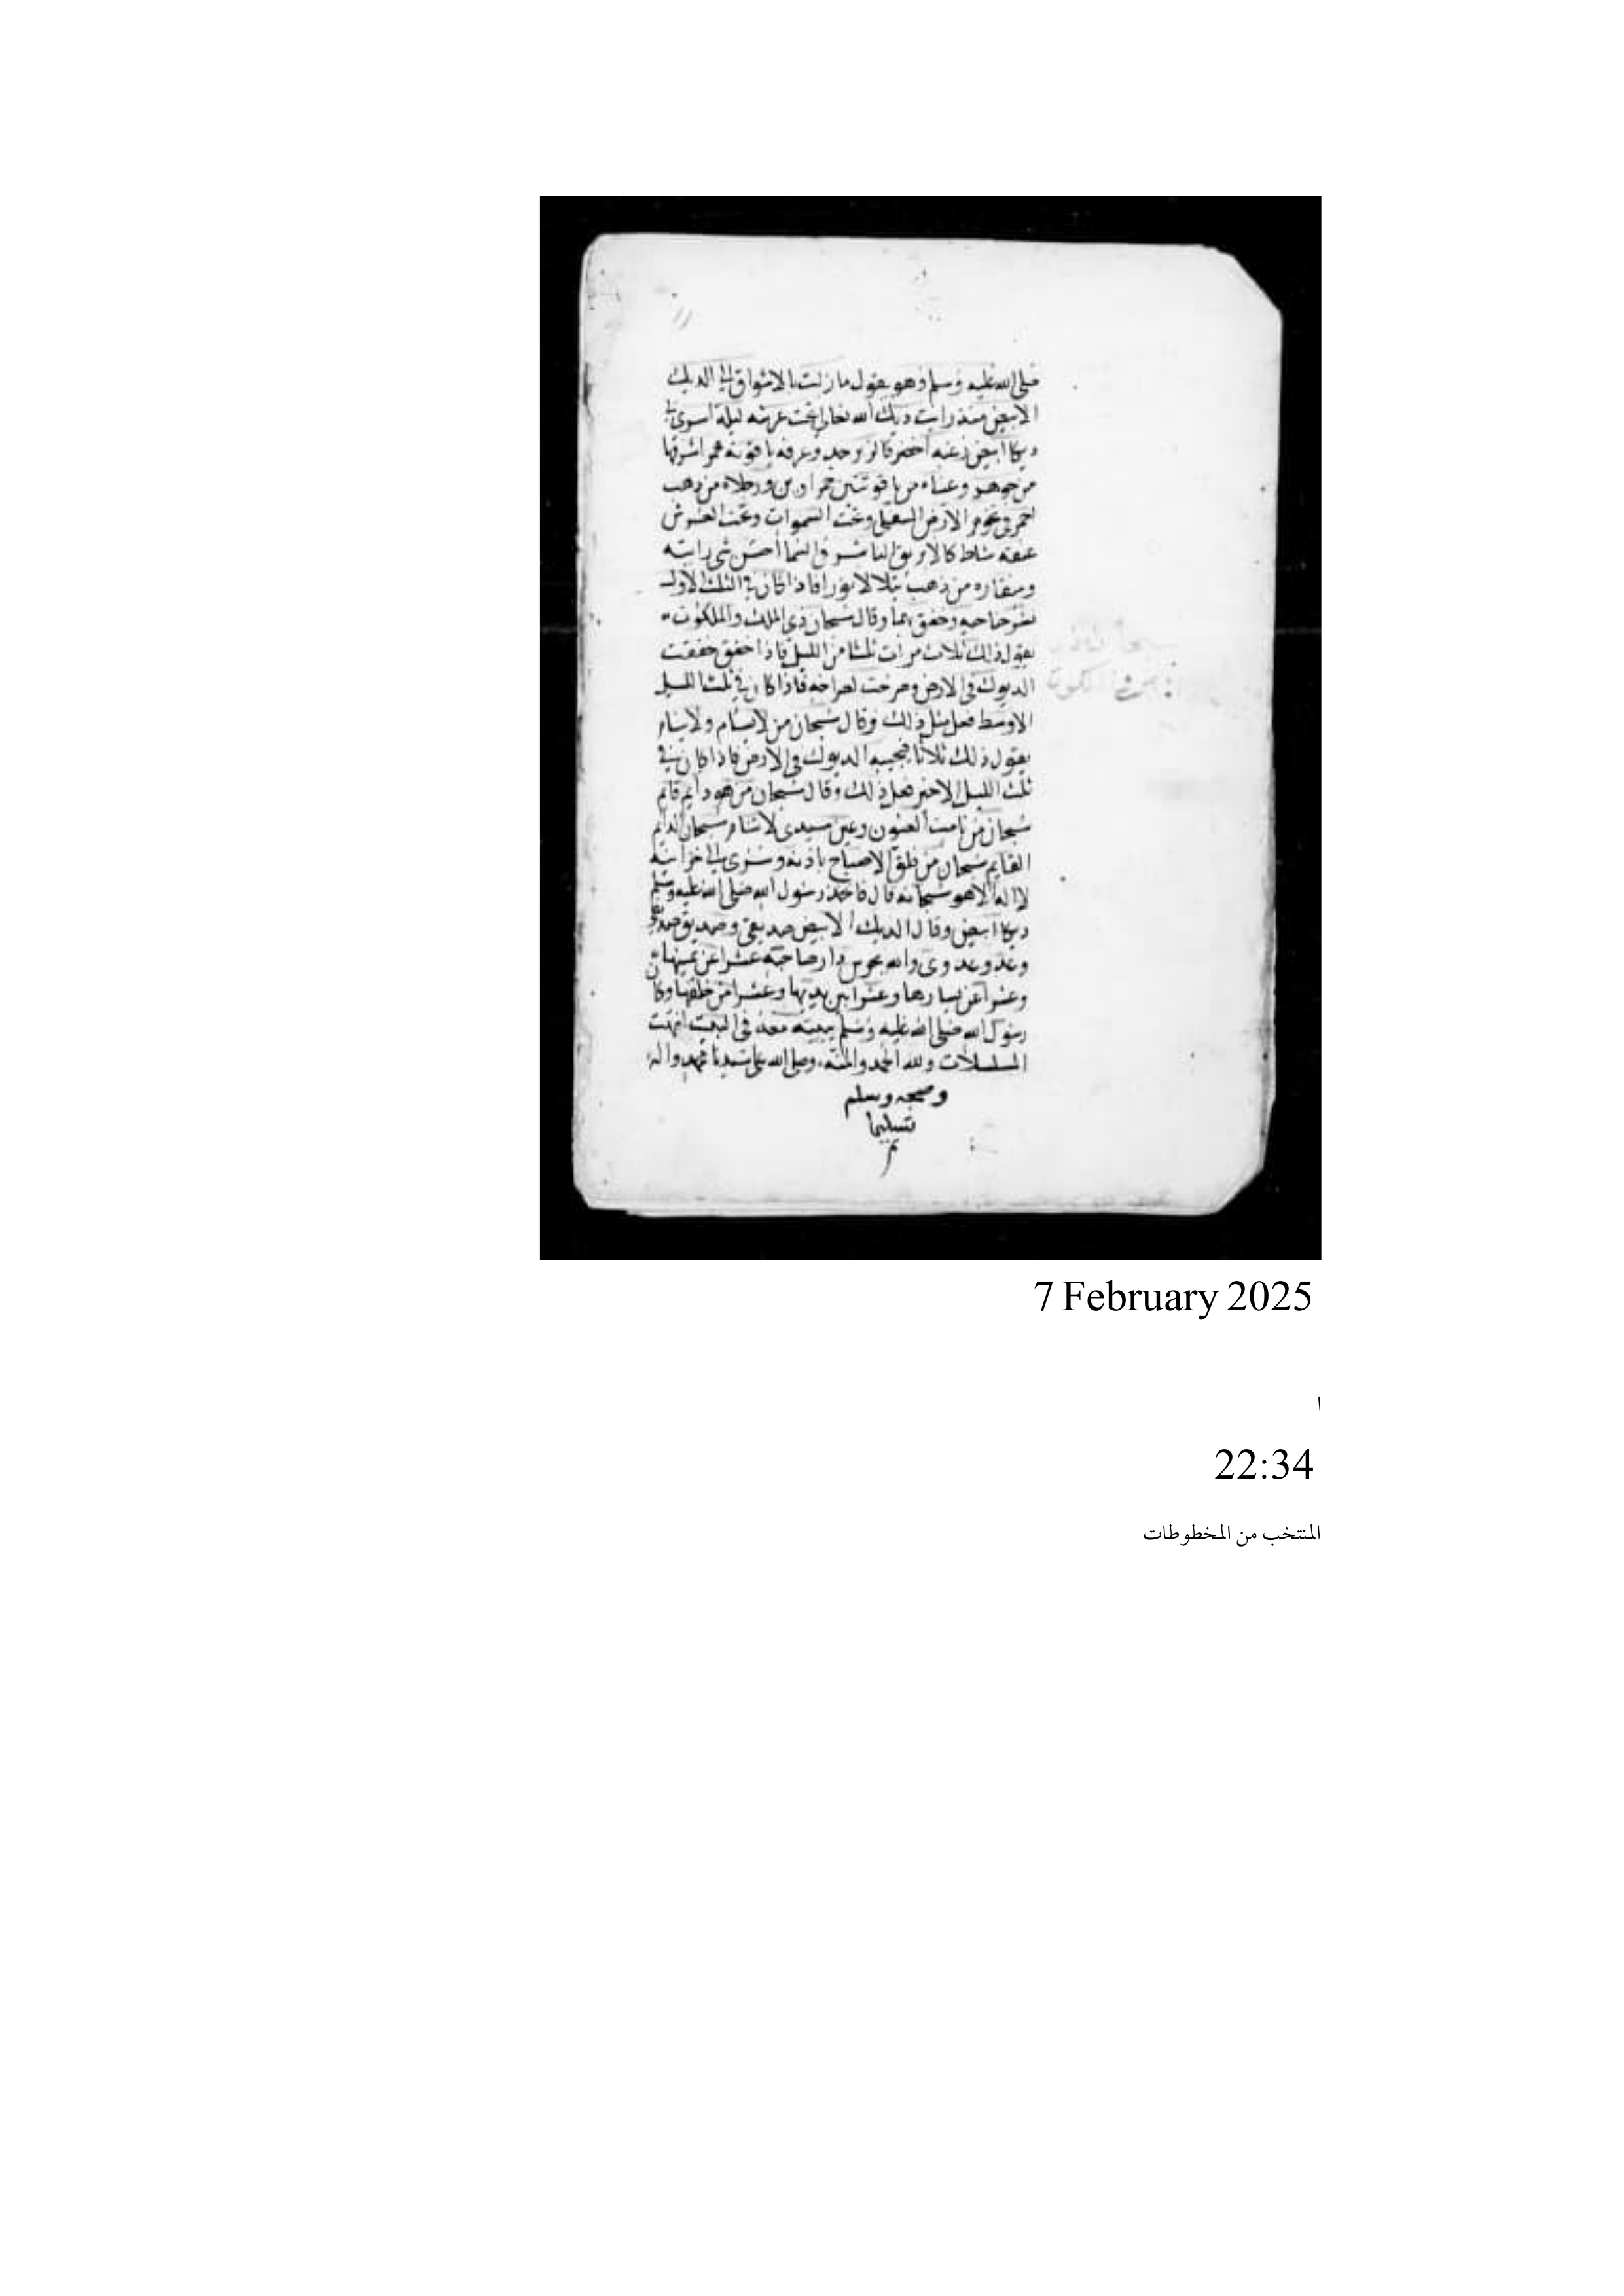 صلى الله عليه وسلم وهو يقول ما زلت بالاشواق الى الديك
الابيض منذ رايت ديك الله تعالى تحت عرشه ليلة اسرى بى
ديكا ابيض زغبه اخضر كالزبرجد وعرفه ياقوتة حمرا شرقها
من جوهر وعيناه من ياقوتتين حمراوين ورجلاه من ذهب
احمر فى تخوم الارض السفلى وتحت السموات وتحت العرش
عنقه كالابريق الناشر فى السما احسن شى رايته
ومنقاره من ذهب يتلالا نورا فاذا كان فى الثلث الاول
نشر جناحيه وخفق بهما وقال سبحان ذى الملك والملكوت
يقول ذلك ثلاث مرات ثلثا من الليل فاذا خفق خفقت
الديوك فى الارض وصرخت لصراخه فاذا كان فى ثلث الليل
الاوسط فعل مثل ذلك وقال سبحان من لا ينام
يقول ذلك ثلاثا فيجيبه الديوك فى الارض فاذا كان فى
ثلث الليل الاخير فعل ذلك وقال سبحان من هو دايم قايم
سبحان من نامت العيون وعين سيدى لا تنام سبحان الدايم
القايم سبحان من فلق الاصباح باذنه الى خزاينه
لا اله الا هو سبحانه قال فاتخذ رسول الله صلى الله عليه وسلم
ديكا ابيض وقال الديك الابيض صديقى وصديق صديقى
وعدو عدوى والله يحرس دار صاحبه عشرا عن يمينها
وعشرا عن يسارها وعشرا بين يديها وعشرا من خلفها وكان
رسول الله صلى الله عليه وسلم يبيته معه فى البيت انتهت
المسلسلات ولله الحمد والمنة وصلى الله على سيدنا محمد واله
وصحبه وسلم
تسليما
تم
7 February 2025
ا
22:34
المنتخب من المخطوطات